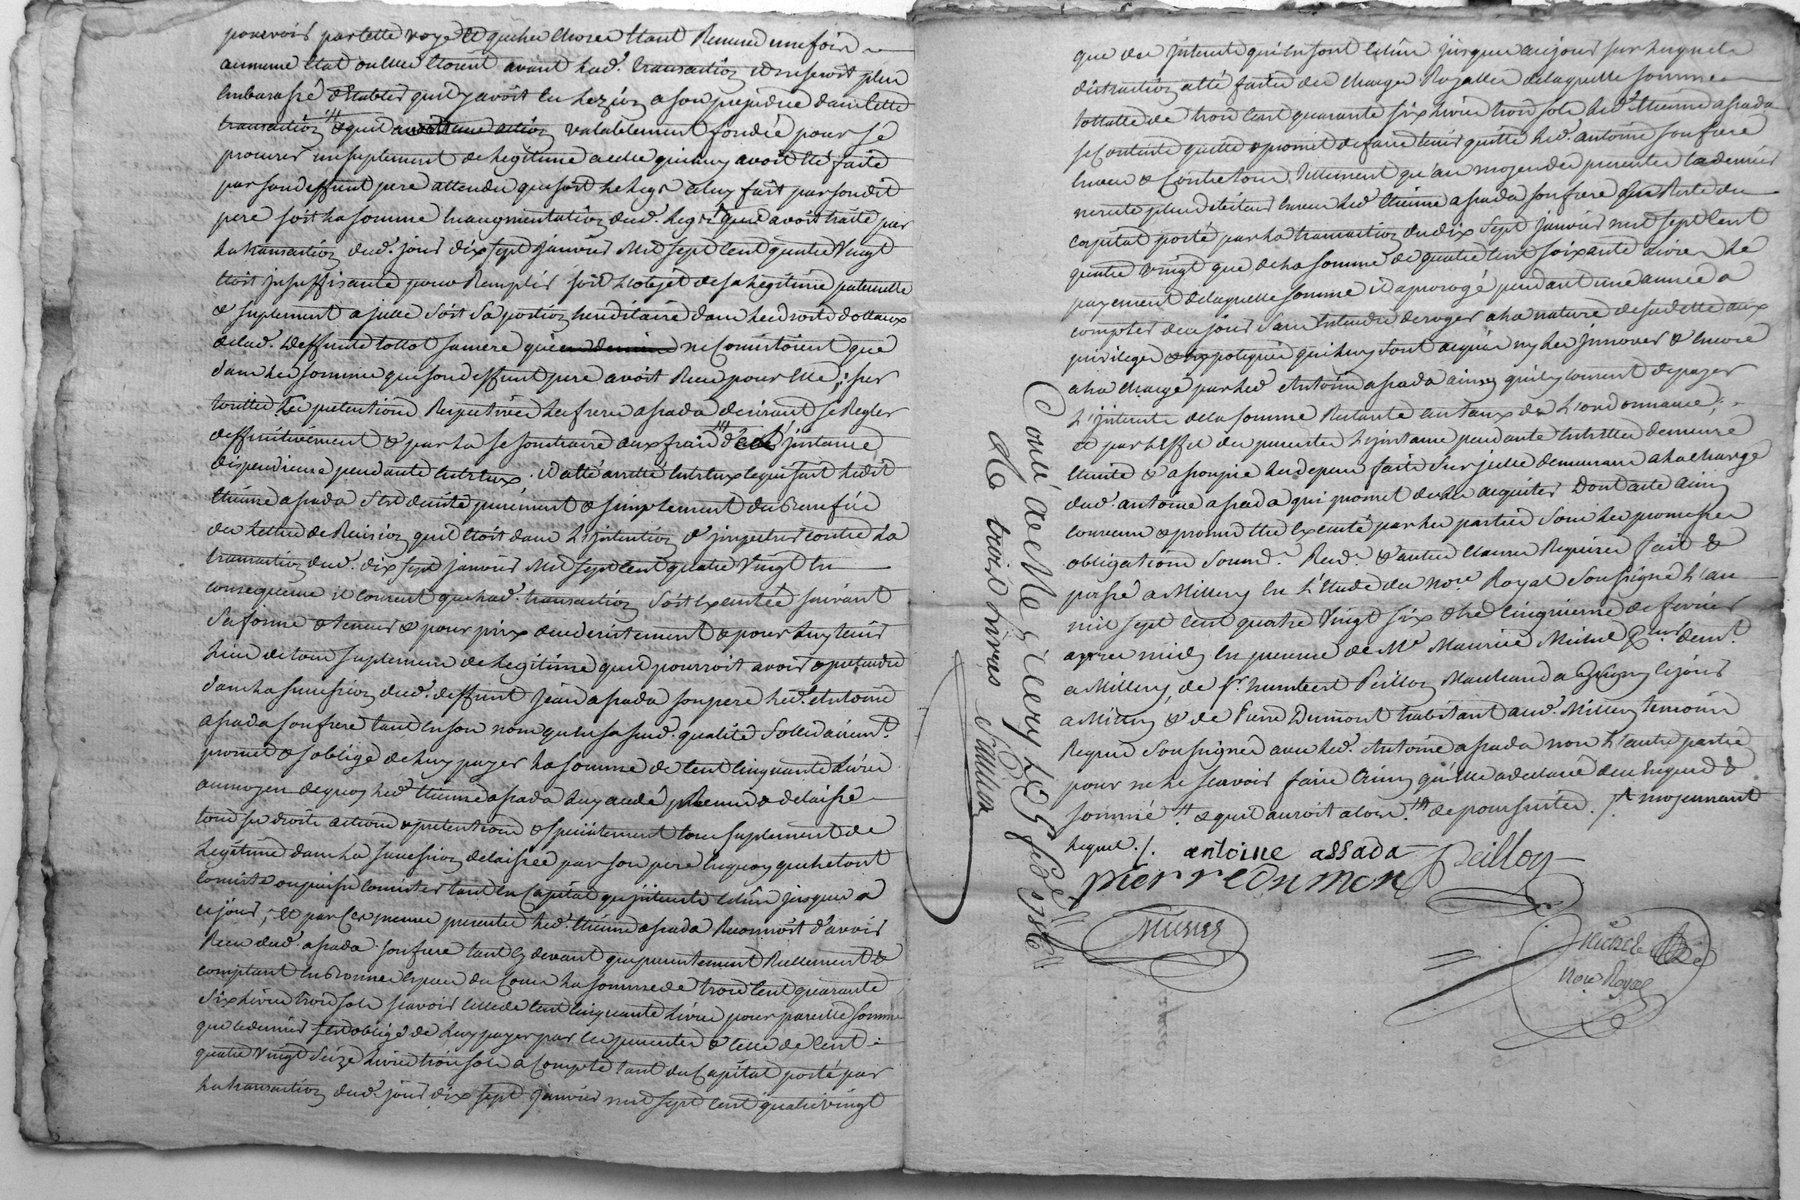 pourvoir par cette voye et que les choses etant Remises une fois
au meme etat ou elles etoient avant lad. transaction il ne seroit plus
embarassé d'etablir qu'il y avoit eu lezion a son prejudice dans cette
transaction valablement fondée pour se
procurer un suplement de legitime a celle qui luy avoit eté faite
par son deffunt pere attendu que soit le legs a luy fait par sondit
pere soit la somme en augmentation dud. legs qu'il avoit traité par
la transaction dud. jour dix sept janvier mil sept cent quatre vingt
etoit insuffisante pour Remplir soit l'objet de sa legitime paternelle
& suplement a jcelle soit sa portion hereditaire dans les droits dottaux
de lad. deffunte tottot sa mere qui ne consistoient que
dans les sommes que son deffunt pere avoit Reçu pour elle ; sur
toutes les pretentions Respectives les freres assada desirant se Regler
deffinitivement & par la se soustraire aux frais d'une jnstance
dispendieuse pendante entr'eux, il a eté arretté entr'eux ce qui suit led.
etienne assada s'est desisté purement & simplement du Benefice
des lettres de Rescision qu'il etoit dans l'intention d'jmpetrer contre la
transaction dud. dix sept janvier mil sept cent quatre vingt en
consequence il consent que lad. transaction soit executée suivant
sa forme & teneur & pour prix dud. desistement & pour luy tenir
lieu de tout suplement de legitime qu'il pourroit avoir & pretendre
dans la succession dud. deffunt jean assada son pere led. antoine
assada son frere tant en son nom qu'en sa susd. qualité sollidairemt.
promet & s'oblige de luy payer la somme de cent cinquante livres
au moyen de quoy led. etienne assada luy a cedé Remis & delaissé
tous ses droits actions & pretentions & specialement tous suplement de
legitime dans la succession delaissée par son pere en quoy que le tout
consiste ou puisse consister tant en capital qu'jnterets echus jusques a
ce jour ; et par ces memes presentes led. etienne assada Reconnoit d'avoir
Reçu dud. assada son frere tant cy devant que presentement Reellement &
comptant en bonnes especes du cours la somme de trois cent quarante
six livres trois sols sçavoir celle de cent cinquante livres pour pareille somme
que ce dernier s'est obligé de luy payer par les presentes & celle de cent
quatre vingt seize livres trois sols a compte tant du capital porté par
la transaction dud. jour dix sept janvier mil sept cent quatre vingt
que des jnterets qui en sont echus jusques aujourd'huy
distraction eté faite des charges Royalles de laquelle somme
tottalle de trois cent quarante six livres trois sols led. etienne assada
se contente quitte & promet de faire tenir quitte led. antoine son frere
envers & contre tous, tellement qu'au moyen des presentes ce dernier
ne reste plus debiteur envers led. etienne assada son frere du Reste du
capital porté par la transaction du dix sept janvier mil sept cent
quatre vingt que de la somme de quatre cent soixante livres le
payement de laquelle somme il a prorogé pendant une année a
compter de ce jour sans entendre deroger a la nature de sa dette aux
privileges & hypoteques qui luy sont acquis ny les jnnover & encore
a la charge par led. antoine assada ainsy qu'il y consent de payer
l'jnteret de la somme Restante au taux de l'ordonnance ;
& par l'effet des presentes l'jnstance pendante entr'elles demeure
eteinte & assoupie les depens faits sur jcelle demeurant a la charge
dud. antoine assada qui promet de les acquiter Dont acte ainsy
convenu & promis etre executé par les parties sous les promesses
obligations soumn. Ren. & autres clauses Requises fait &
passé a Millery en l'Etude du nore. Royal soussigné l'an
mil sept cent quatre vingt six & le cinquieme de fevrier
apres midy en presence de Me. Maurice Michel demt.
a Millery, de sr. humbert Peillon Marchand a ce jour
a Millery & de Pierre Dumont habitant aud. Millery temoins
Requis soussignés avec led. Antoine assada non l'autre partie
pour ne le sçavoir faire ainsy qu'elle a declaré de ce enquise &
sommé. & qu'il auroit alors. de poursuites. moyennant
lequel.
antoine assada Peillon
pierre dumont
Controllé a Millery le 5 febr. 1786
Ro. trois livres
nore Royal